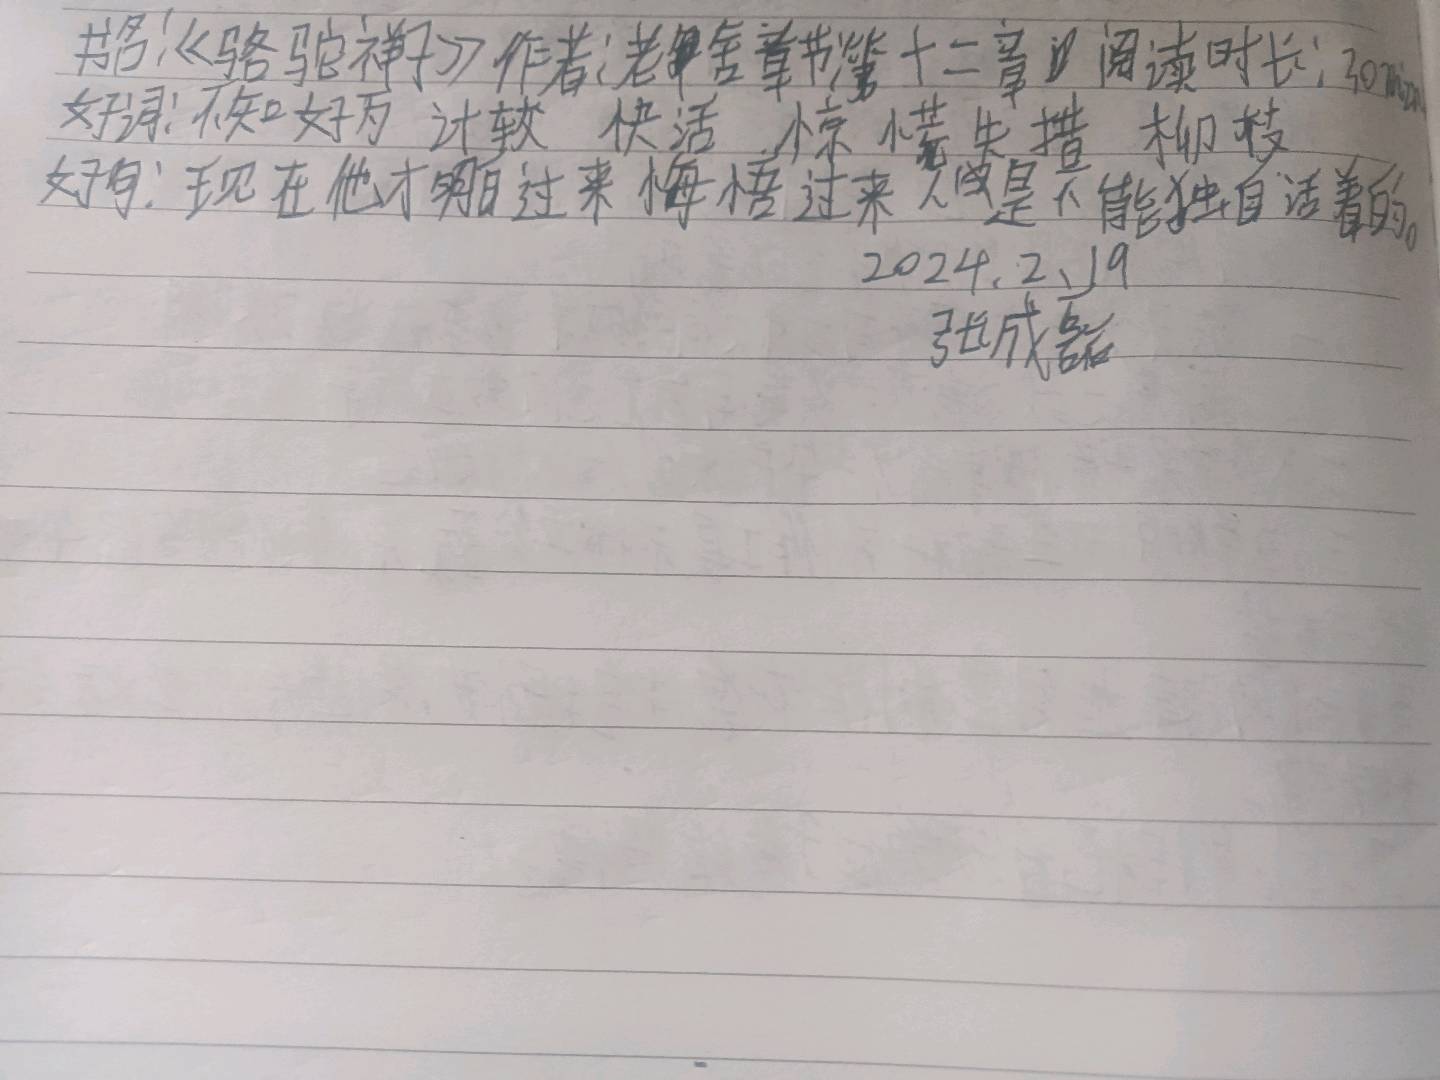 书名:《骆驼祥子》作者:老舍 章节:第十二章 阅读时长:30min
好词:不知好歹 计较 快活 惊慌失措 柳枝
好句:现在他才明白过来悔悟过来人是不能独自活着的。
2024.2.19
张成磊